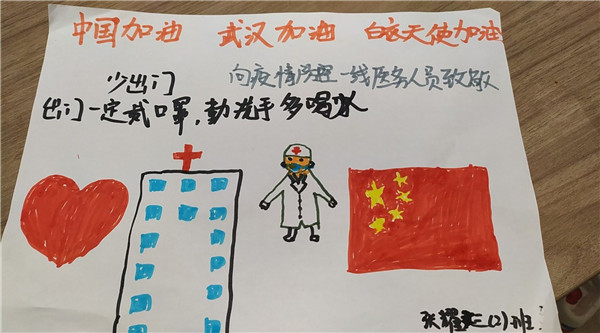 中国加油 武汉加油 白衣天使加油
少出门 向疫情防控一线医务人员致敬
出门一定戴口罩,勤洗手多喝水
张耀 三(2)班